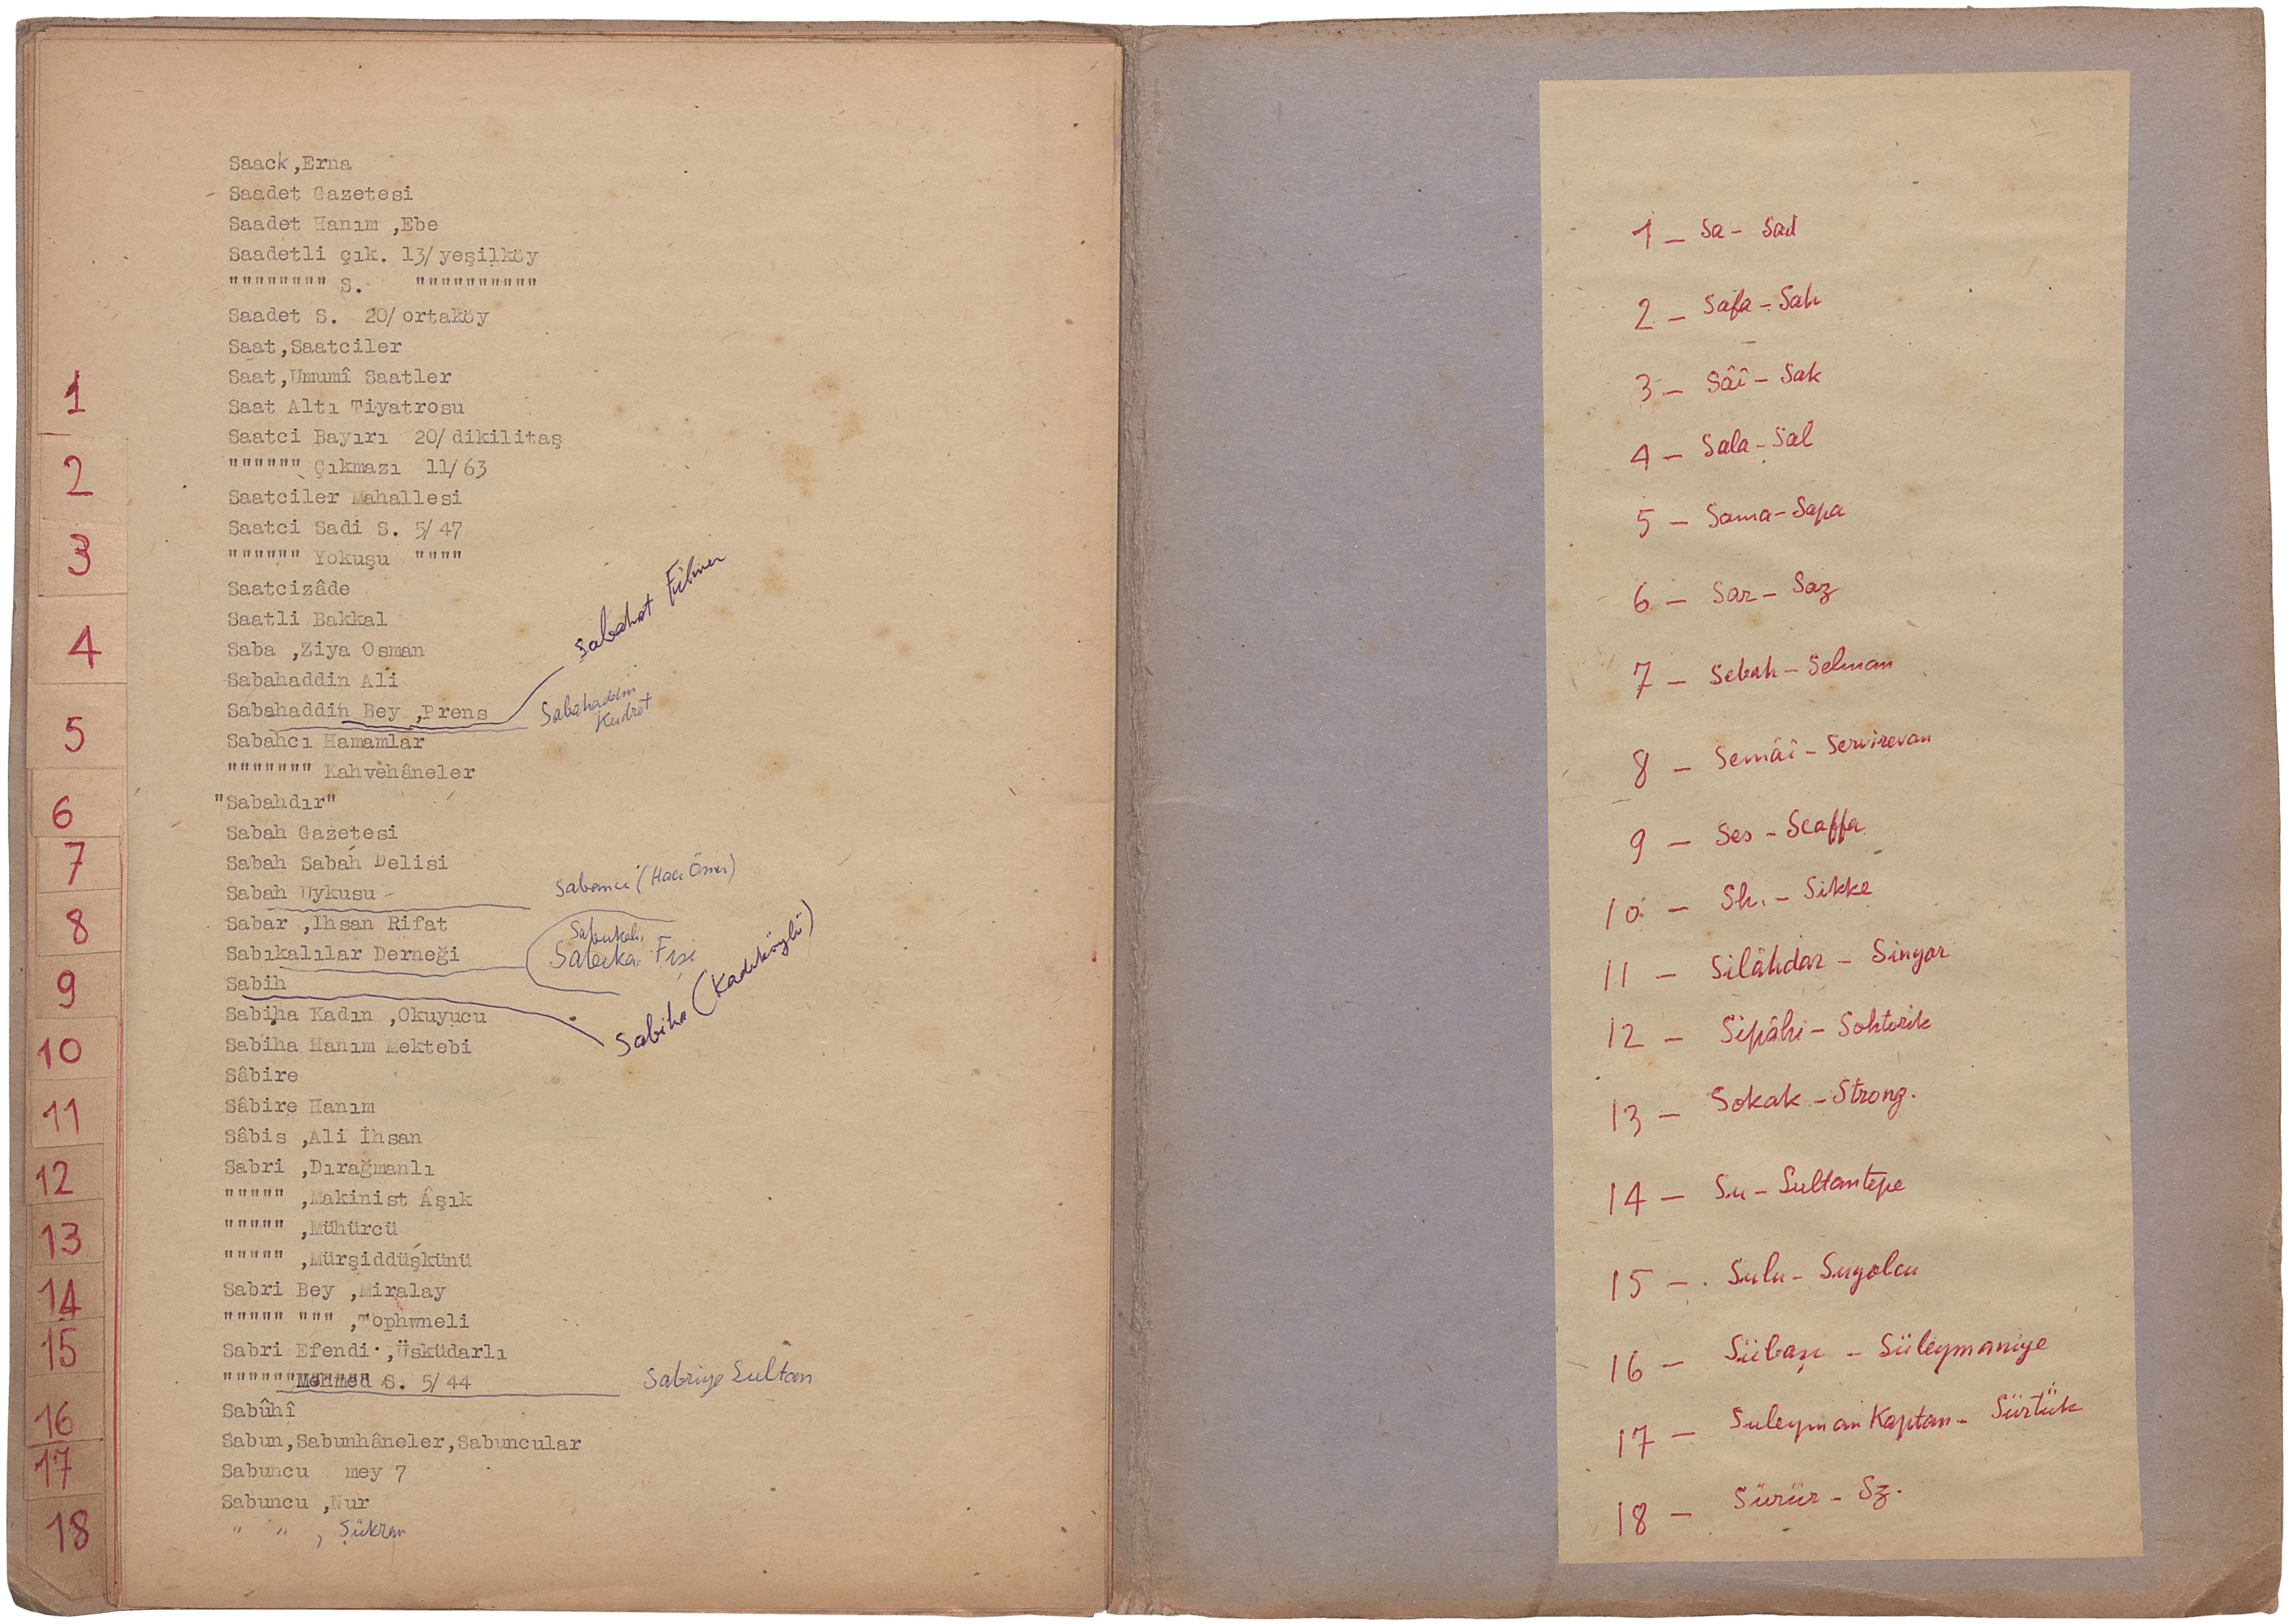 Saack ,Erna
- Saadet Gazetesi
Saadet Hanım ,Ebe
Saadetli çık. 13/ yeşilköy
"""""""" S. """"""""""
Saadet S. 20/ ortaköy
Saat ,Saatciler
Saat ,Umumî Saatler
Saat Altı Tiyatrosu
Saatci Bayırı 20/ dikilitaş
"""""" Çıkmazı 11/ 63
Saatciler Mahallesi
Saatci Sadi S. 5/ 47
"""""" Yokuşu """"
Saatcizâde
Saatli Bakkal
Saba ,Ziya Osman
Sabahaddin Ali
Sabahaddin Bey ,Prens
Sabahat Filmer
Sabahaddin
Kudret
Sabahcı Hamamlar
""""""" Kahvehâneler
"Sabahdır"
Sabah Gazetesi
Sabah Sabah Delisi
Sabah Uykusu -
Sabancı (Hacı Ömer)
Sabar ,Ihsan Rifat
Sabıkalılar Derneği
Sabıkalı
Sabıka Fişi
Sabih
Sabiha (Kadıköylü)
Sabiha Kadın ,Okuyucu
Sabiha Hanım Mektebi
Sâbire
Sâbire Hanım
Sâbis ,Ali İhsan
Sabri ,Dırağmanlı
""""" ,Makinist Âşık
""""" ,Mühürcü
""""" ,Mürşiddüşkünü
Sabri Bey ,Miralay
""""" """ ,Tophwneli
Sabri Efendi ,Üsküdarlı
""""""Mehmed S. 5/ 44
Sabriye Sultan
Sabûhî
Sabun,Sabunhâneler,Sabuncular
Sabuncu mey 7
Sabuncu ,Nur
" " , Şükran
1
2
3
4
5
6
7
8
9
10
11
12
13
14
15
16
17
18
1 - Sa - Sad
2 - Safa - Sah
3 - Sâî - Sak
4 - Sala - Sal
5 - Sama - Sapa
6 - Sar - Saz
7 - Sebah - Selman
8 - Semâî - Servirevan
9 - Ses - Scaffa
10 - Sh. - Sikke
11 - Silâhdar - Singar
12 - Sipâhi - Sohtorik
13 - Sokak - Strong.
14 - Su - Sultantepe
15 - Sulu - Suyolcu
16 - Sübaşı - Süleymaniye
17 - Suleyman Kaptan - Sürtük
18 - Sürür - Sz.